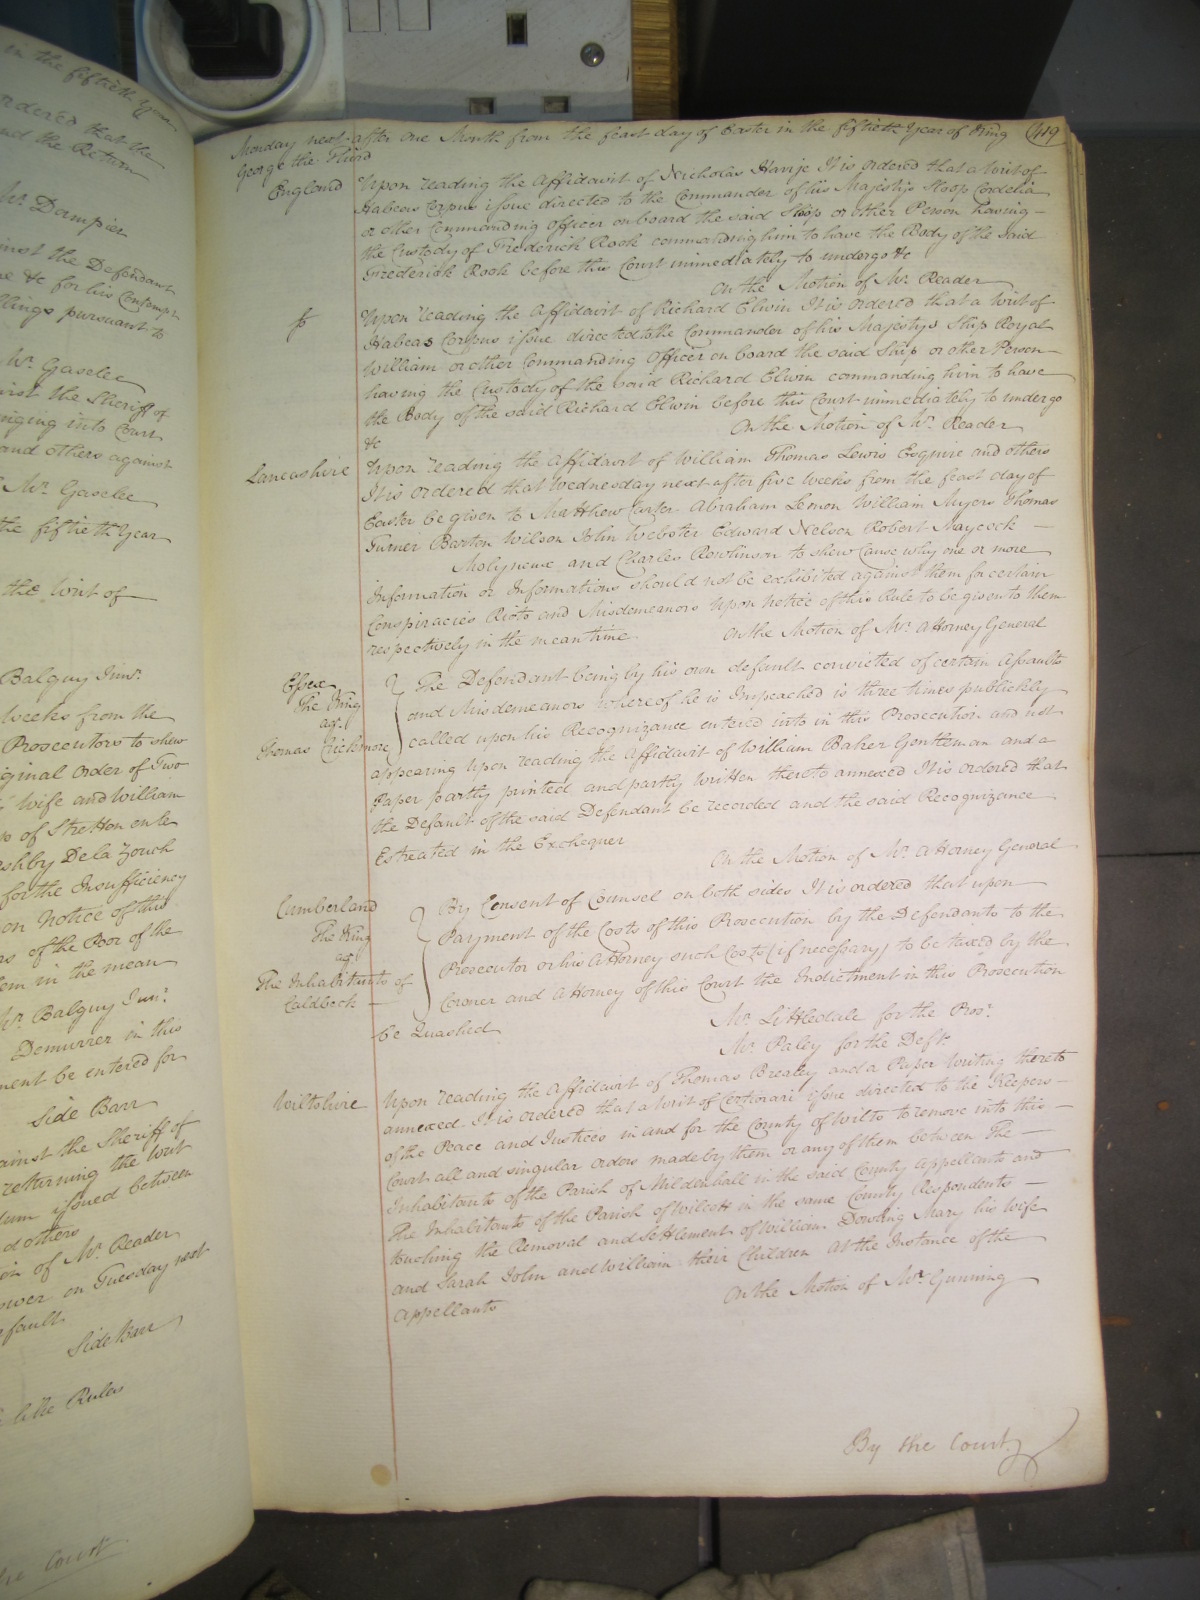 in the fiftieth Year
ordered that the
and the Return
Mr. Dampier
against the Defendant
&c for his Contempt
pursuant to
Mr. Gaselee
the Sheriff of
bringing into Court
and others against
Mr. Gaselee
the fiftieth Year
the Writ of
Balguy Junr.
Weeks from the
Prosecutors to shew
Original Order of Two
Wife and William
of Stretton en le
Ashby De la Zouch
for the Insufficiency
on Notice of this
of the Poor of the
them in the mean
Mr. Balguy Junr.
Demurrer in this
be entered for
Side Barr
against the Sheriff of
returning the Writ
issued between
and others
of Mr. Reader
on Tuesday next
default
Side Barr
the Rules
the Court
Monday next after one Month from the feast day of Easter in the fiftieth Year of King 419
George the Third
England Upon reading the Affidavit of Nicholas Harije It is ordered that a Writ of
Habeas Corpus issue directed to the Commander of his Majestys Sloop Cordelia
or other Commanding Officer on board the said Sloop or other Person having
the Custody of Frederick Rook commanding him to have the Body of the said
Frederick Rook before this Court immediately to undergo &c
On the Motion of Mr. Reader
Upon reading the Affidavit of Richard Elwin It is ordered that a Writ of
Habeas Corpus issue directed to the Commander of his Majestys Ship Royal
William or other Commanding Officer on board the said Ship or other Person
having the Custody of the said Richard Elwin commanding him to have
the Body of the said Richard Elwin before this Court immediately to undergo
&c On the Motion of Mr. Reader
Lancashire Upon reading the Affidavit of William Thomas Lewis Esquire and others
It is ordered that Wednesday next after five Weeks from the feast day of
Easter be given to Matthew Carter Abraham Lemon William Myers Thomas
Turner Barton Wilson John Webster Edward Nelson Robert Maycock
Molyneux and Charles Rowlinson to shew Cause why one or more
Information or Informations should not be exhibited against them for certain
Conspiracies Riots and Misdemeanors Upon Notice of this Rule to be given to them
respectively in the mean time On the Motion of Mr. Attorney General
Essex
The King
agt.
Thomas Crickmore
The Defendant being by his own default convicted of certain Assaults
and Misdemeanors whereof he is Impeached is three times publickly
called upon his Recognizance entered into in this Prosecution and not
appearing Upon reading the Affidavit of William Baker Gentleman and a
Paper partly printed and partly written thereto annexed It is ordered that
the Default of the said Defendant be recorded and the said Recognizance
Estreated in the Exchequer
On the Motion of Mr. Attorney General
Cumberland
The King
agt.
The Inhabitants of
Caldbeck
By Consent of Counsel on both sides It is ordered that upon
Payment of the Costs of this Prosecution by the Defendants to the
Prosecutor or his Attorney such Costs (if necessary) to be taxed by the
Coroner and Attorney of this Court the Indictment in this Prosecution
be Quashed
Mr. Littledale for the Prosr.
Mr. Paley for the Deft.
Wiltshire Upon reading the Affidavit of Thomas Brealey and a Paper Writing thereto
annexed It is ordered that a Writ of Certiorari issue directed to the Keepers
of the Peace and Justices in and for the County of Wilts to remove into this
Court all and singular orders made by them or any of them between The
Inhabitants of the Parish of Mildenhall in the said County Appellants and
The Inhabitants of the Parish of Wilcott in the same County Respondents
touching the Removal and Settlement of William Dowling Mary his Wife
and Sarah John and William their Children At the Instance of the
Appellants On the Motion of Mr. Gunning
By the Court